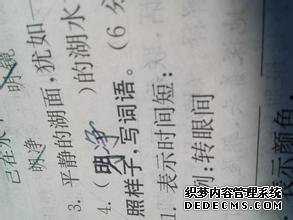 明镜
已在水
明净
3. 平静的湖面，犹如一
4. (明净)的湖水
照样子，写词语。(6分
1. 表示时间短:
例:转眼间
表示颜色
织梦内容管理系统
DEDECMS.COM